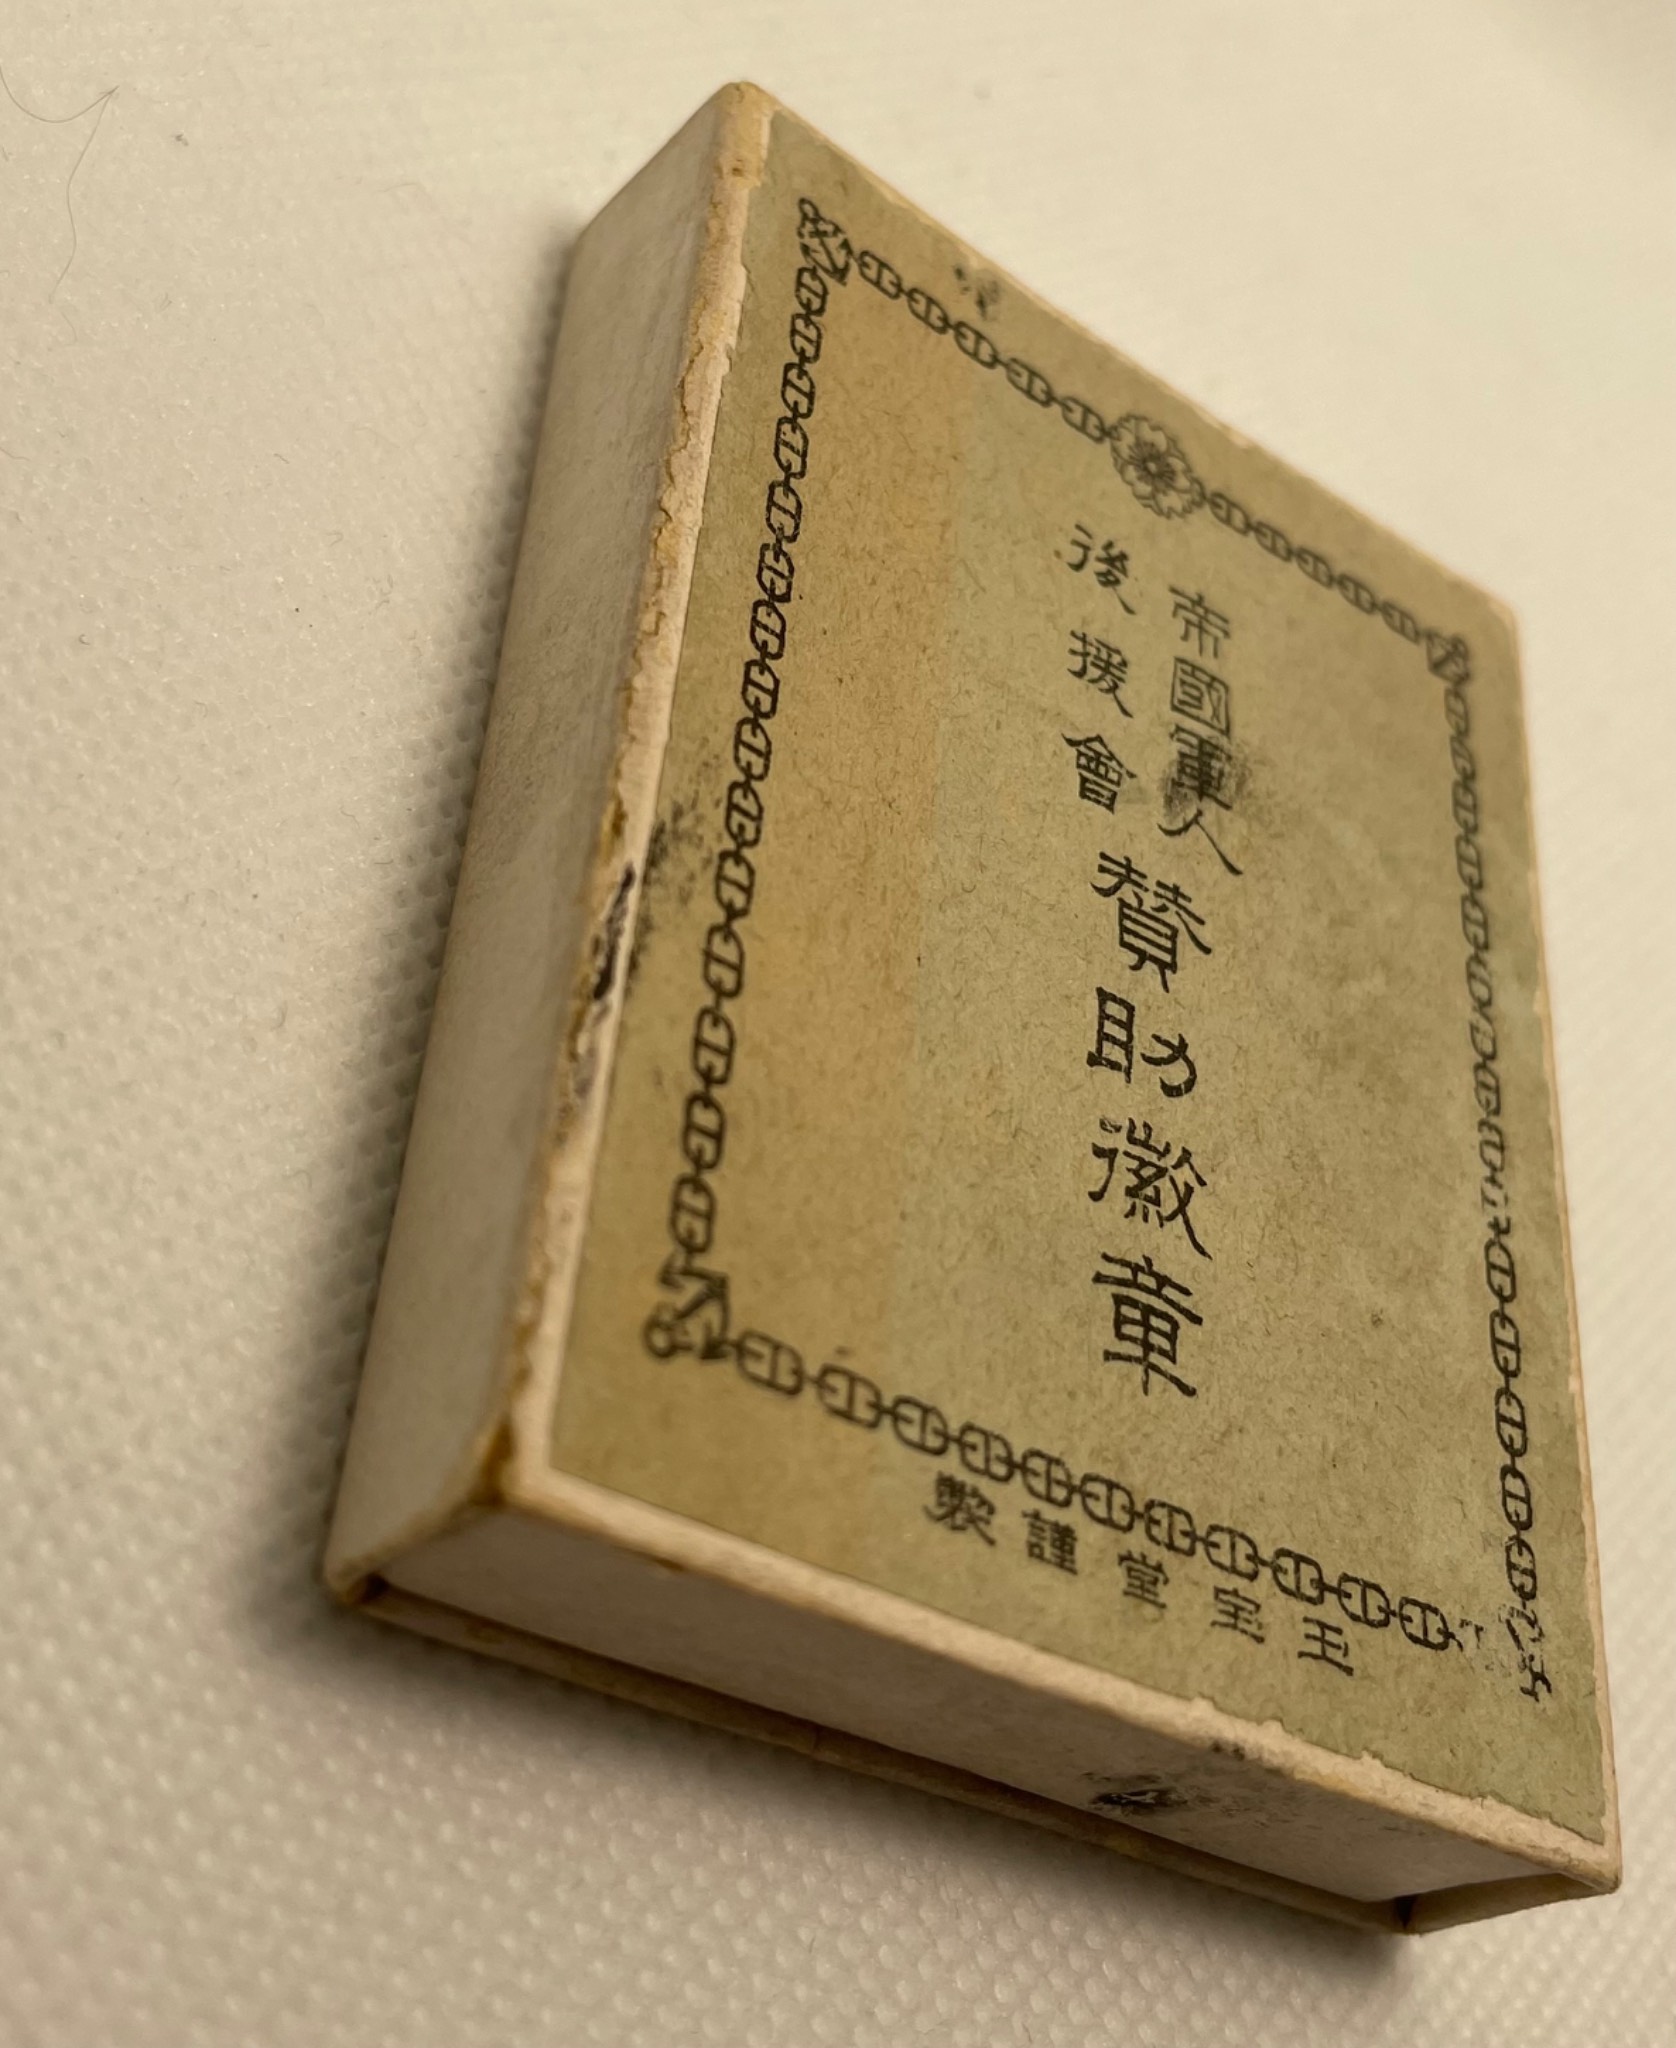 帝國軍人
後援會
賛助徽章
玉宝堂謹製